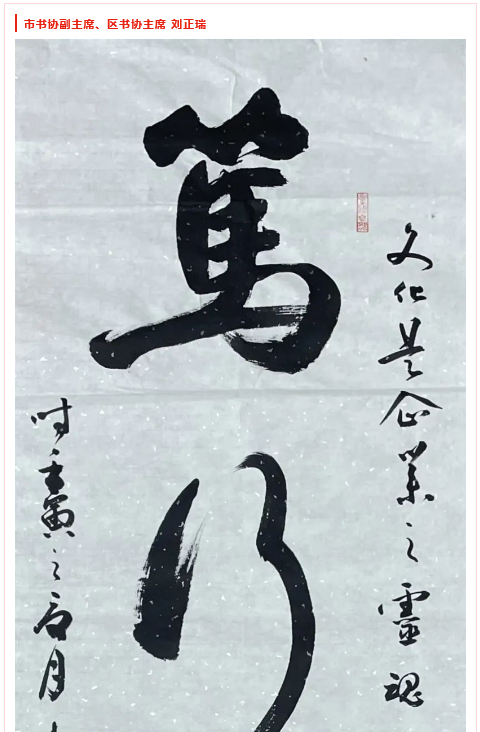 市书协副主席、区书协主席 刘正瑞
文化是企业之靈魂
篤行
时壬寅之石月